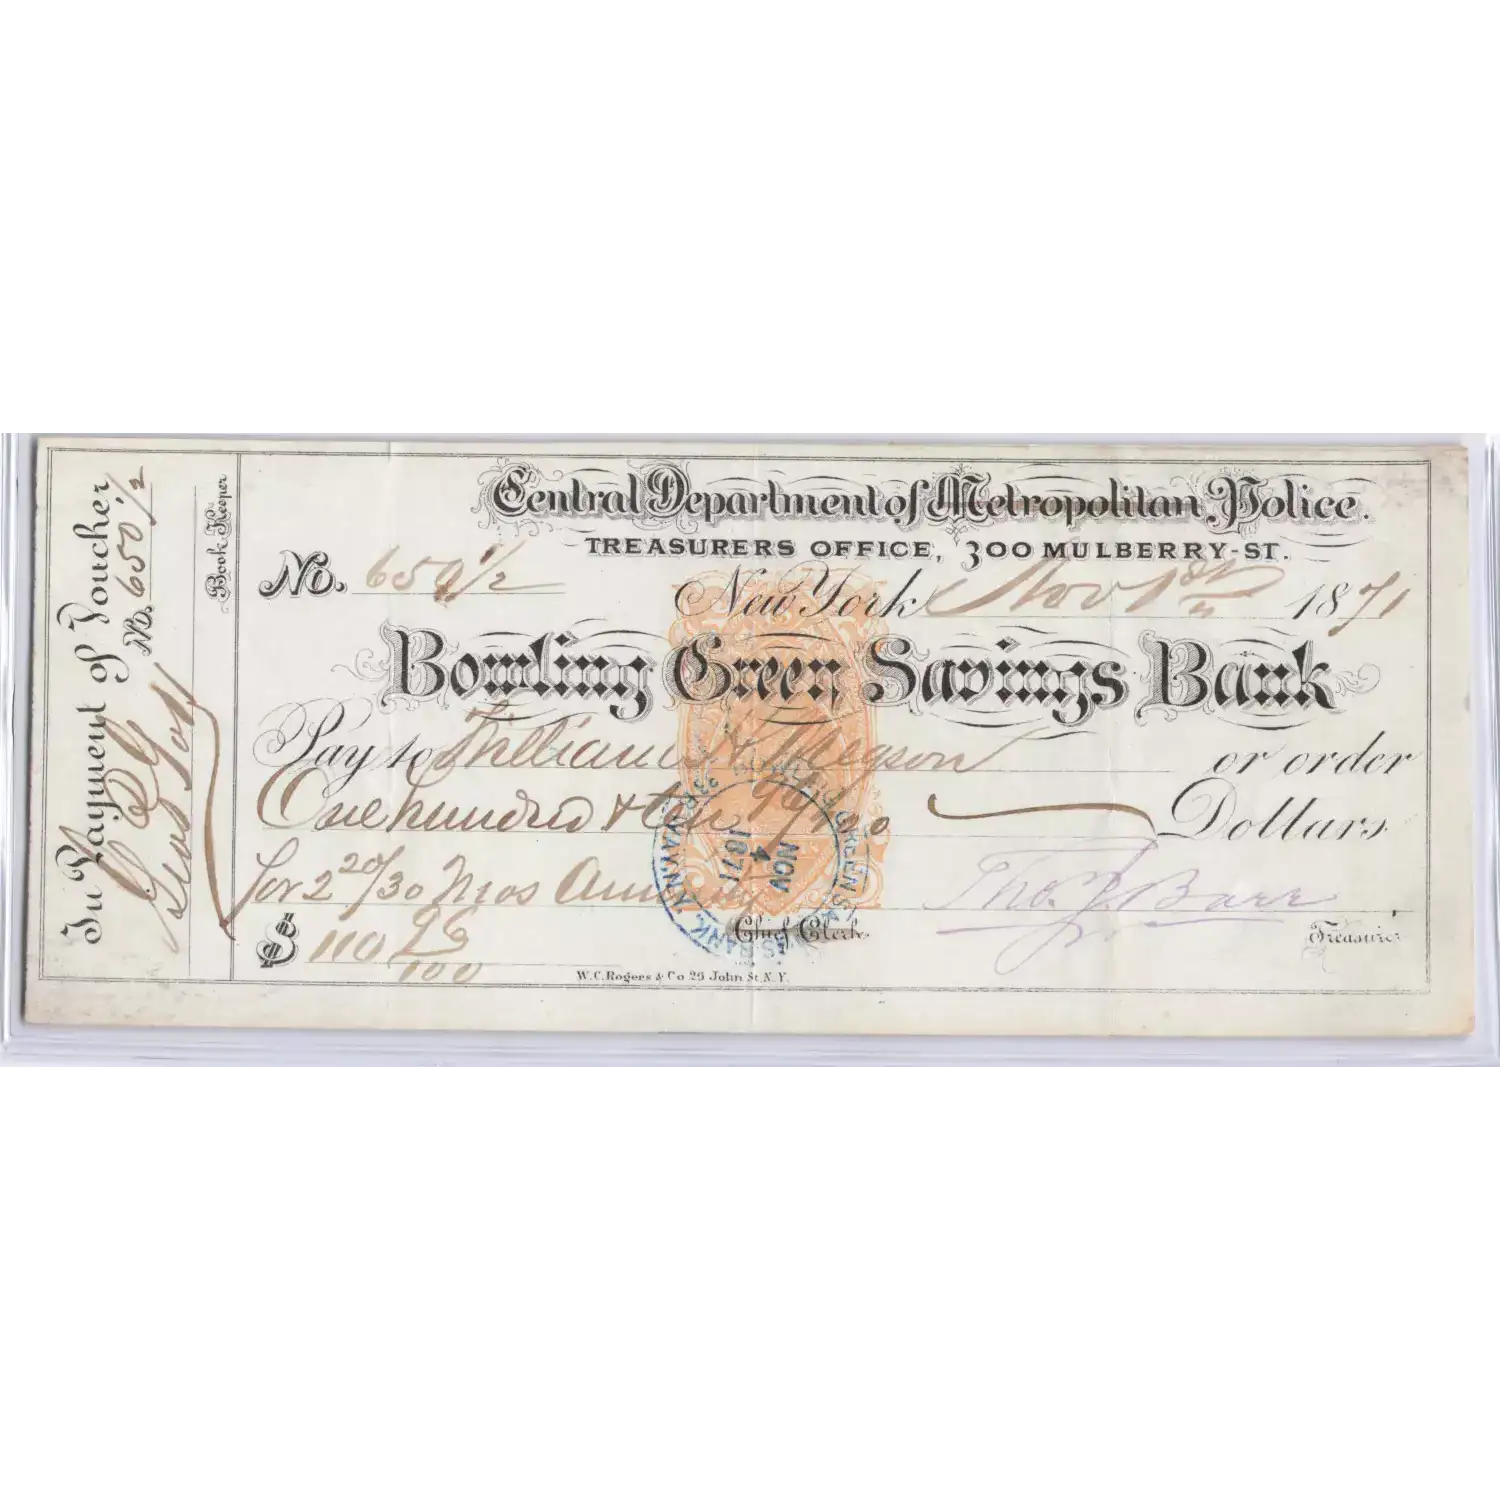 In Payment of Voucher
No. 650 1/2
Book Keeper
Central Department of Metropolitan Police.
TREASURERS OFFICE, 300 MULBERRY-ST.
No. 650 1/2
New York Nov 1st 1871
Bowling Green Savings Bank
Pay to William H. or order
One hundred & ten 96/100 Dollars
for 2 20/30 Mos
$ 110 96/100
Chief Clerk
Thos. J. Barr
Treasurer
W.C. Rogers & Co 26 John St. N.Y.
BOWLING GREEN SAVINGS BANK, N.Y.
NOV
4
1871